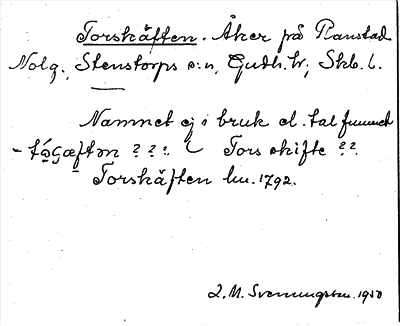 Torskäften. Åker på Ranstad
Nolg., Stenstorps s:n, Gudh. hr, Skb. l.
Namnet ej i bruk el. tal funnet
- tɷ́sɕæftən ? ? ? Tors skifte ? ?
Torskäften lm. 1792.
L. M. Svenungsson. 1950